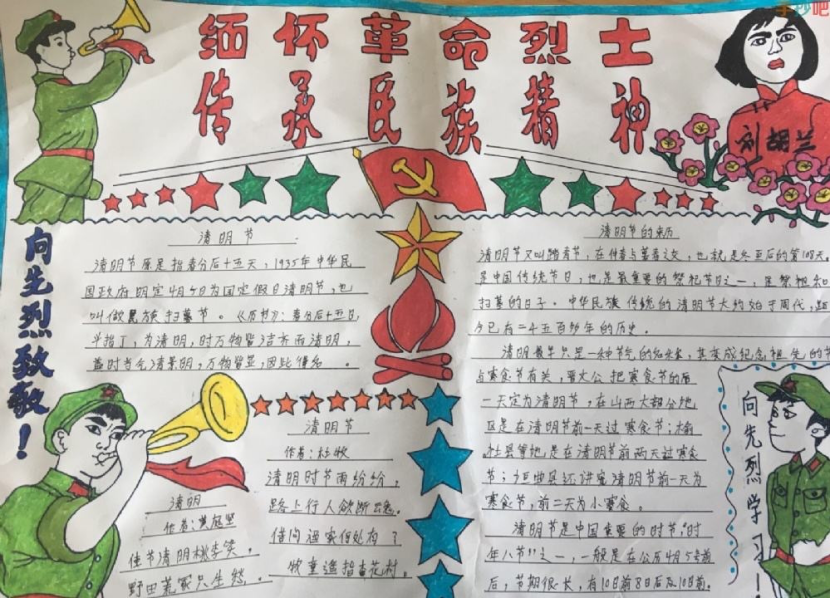 缅怀革命烈士
传承民族精神
刘胡兰
向先烈致敬！
清明节
清明节原是指春分后十五天，1935年中华民
国政府明定4月5日为国定假日清明节，也
叫做民族扫墓节。《历书》：春分后十五日，
斗指丁，为清明，时万物皆洁齐而清明，
盖时当气清景明，万物皆显，因此得名。
清明
作者：黄庭坚
佳节清明桃李笑，
野田荒冢只生愁。
清明节
作者：杜牧
清明时节雨纷纷，
路上行人欲断魂。
借问酒家何处有？
牧童遥指杏花村。
清明节的来历
清明节又叫踏青节，在仲春与暮春之交，也就是冬至后的第108天。
是中国传统节日，也是最重要的祭祀节日之一，是祭祖和
扫墓的日子。中华民族传统的清明节大约始于周代，距
今已有二千五百多年的历史。
清明最早只是一种节气的名称，其变成纪念祖先的节
与寒食节有关，晋文公把寒食节的后
一天定为清明节，在山西大部分地
区是在清明节前一天过寒食节；榆
社县等地是在清明节前两天过寒食
节；垣曲县还讲究清明节前一天为
寒食节，前二天为小寒食。
清明节是中国重要的时节，"时
年八节"之一，一般是在公历4月5号前
后，节期很长，有10日前8日后及10日前
向先烈学习！